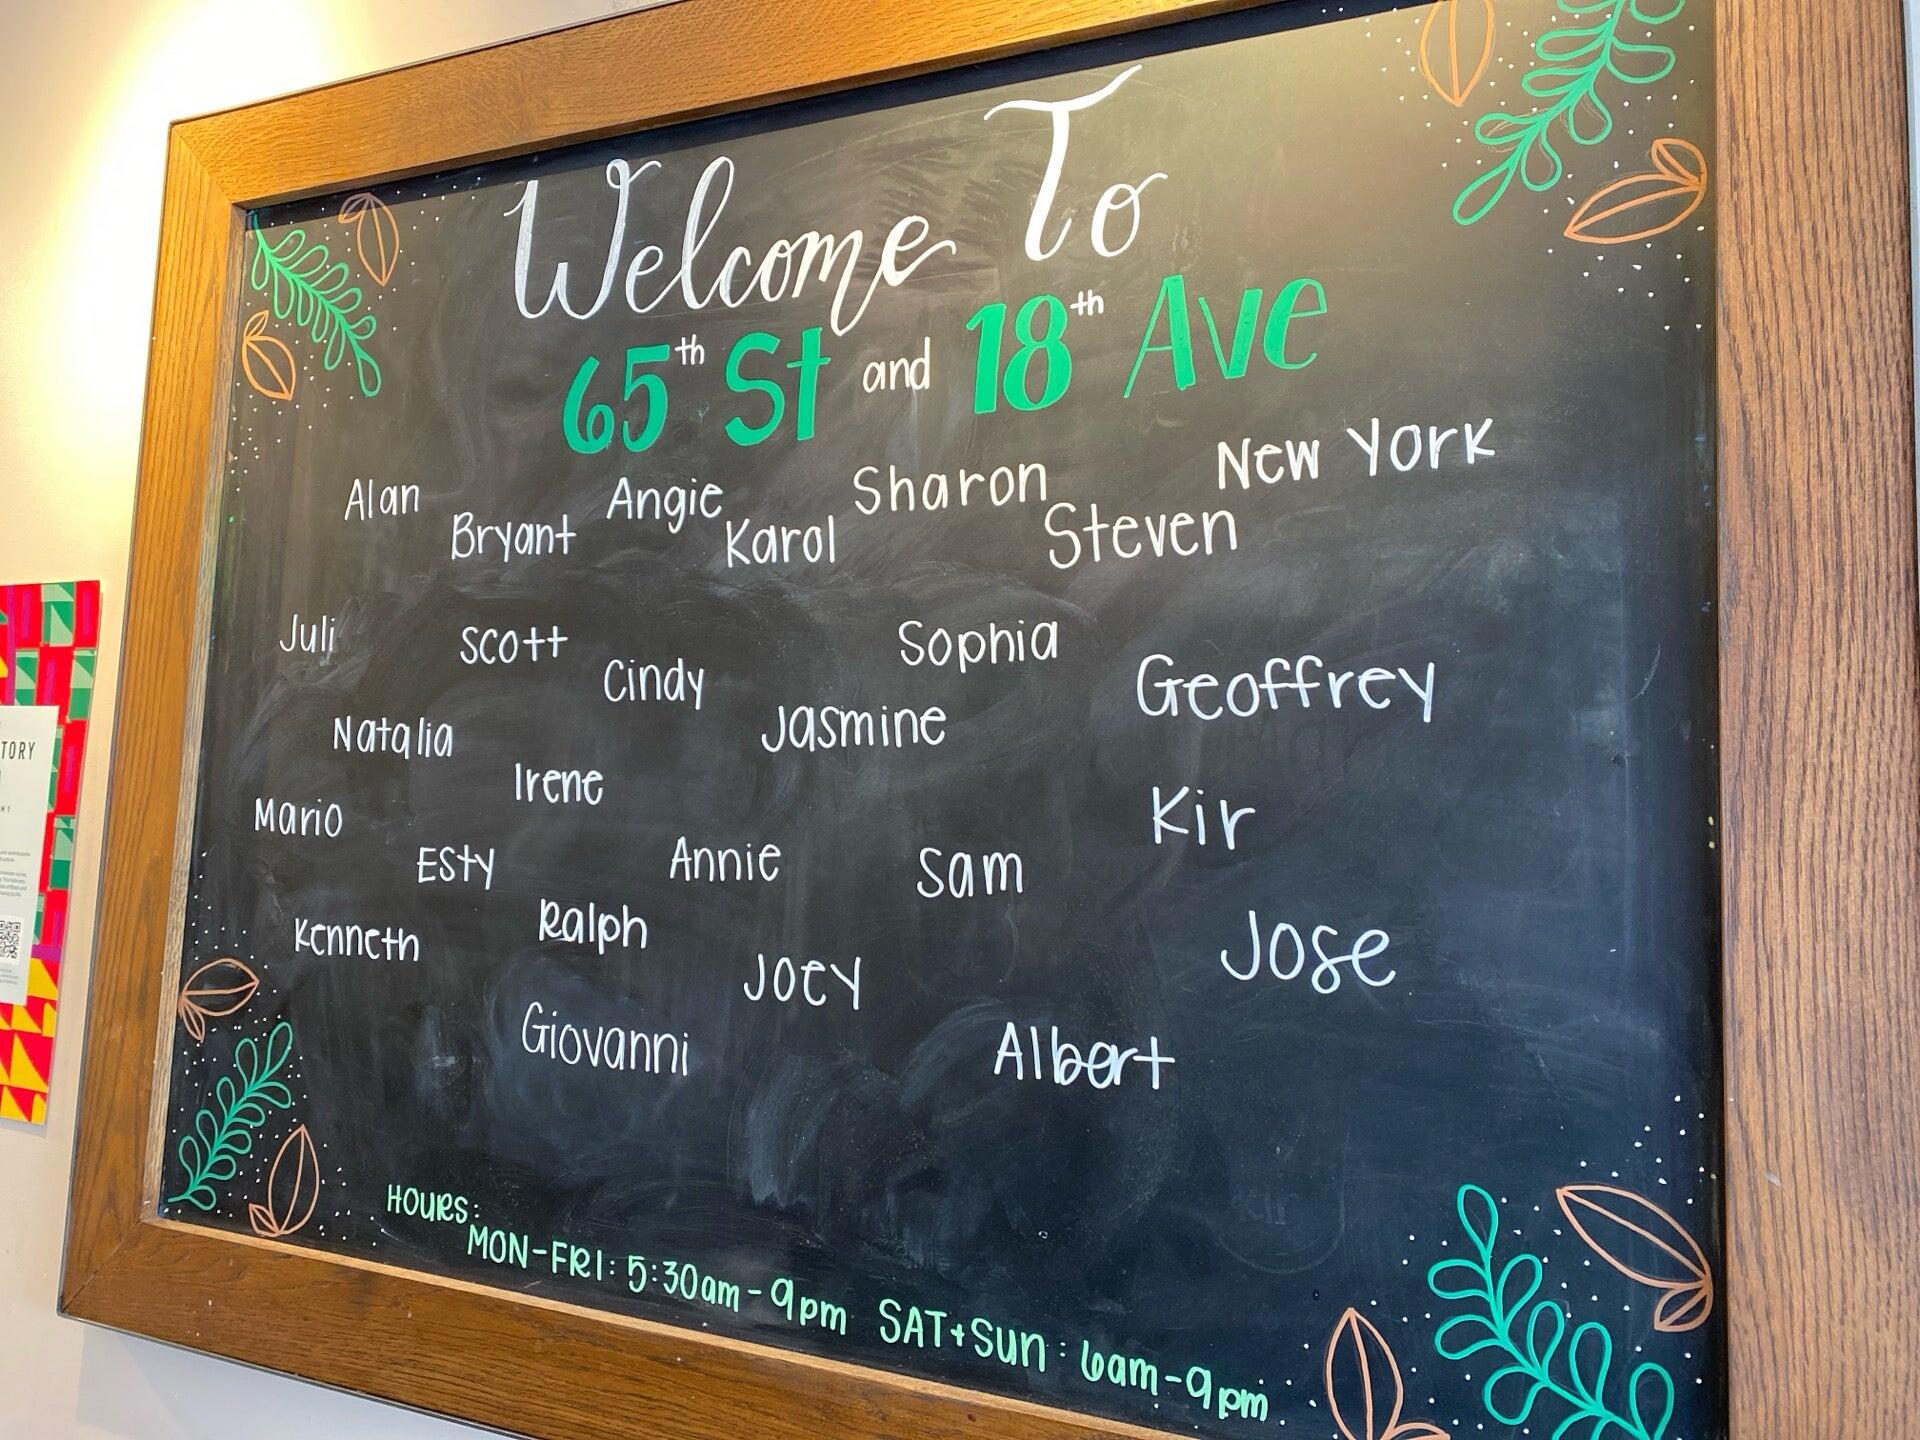 Welcome To
65th St and 18th Ave
New York
Alan Bryant Angie Karol Sharon Steven
Juli Scott Cindy Sophia Geoffrey
Natalia Jasmine
Irene
Mario Kir
Esty Annie Sam
Kenneth Ralph Jose
Joey
Giovanni Albert
HOURS:
MON-FRI: 5:30am-9pm SAT+SUN: 6am-9pm
TORY